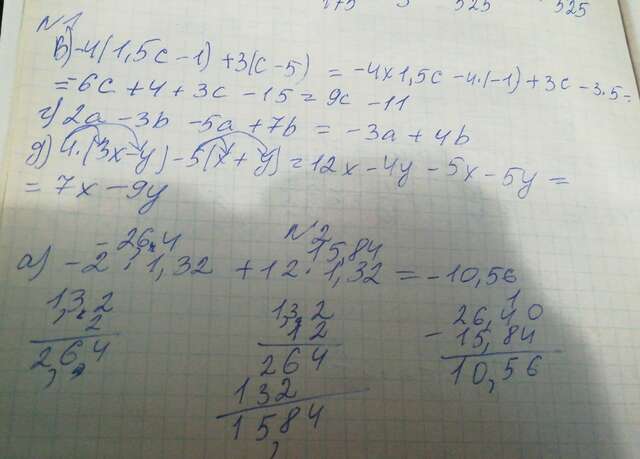 525 525
N1
в) -4(1,5c - 1) + 3(c - 5) = -4×1,5c - 4·(-1) + 3c - 3·5 =
= -6c + 4 + 3c - 15 = 9c - 11
г) 2a - 3b - 5a + 7b = -3a + 4b
д) 4·(3x - y) - 5(x + y) = 12x - 4y - 5x - 5y =
= 7x - 9y
N2
-26,4 15,84
а) -2 · 1,32 + 12 · 1,32 = -10,56
1,32 1,32 1
2 12 26,40
2,6,4 264 - 15,84
132 10,56
15,84